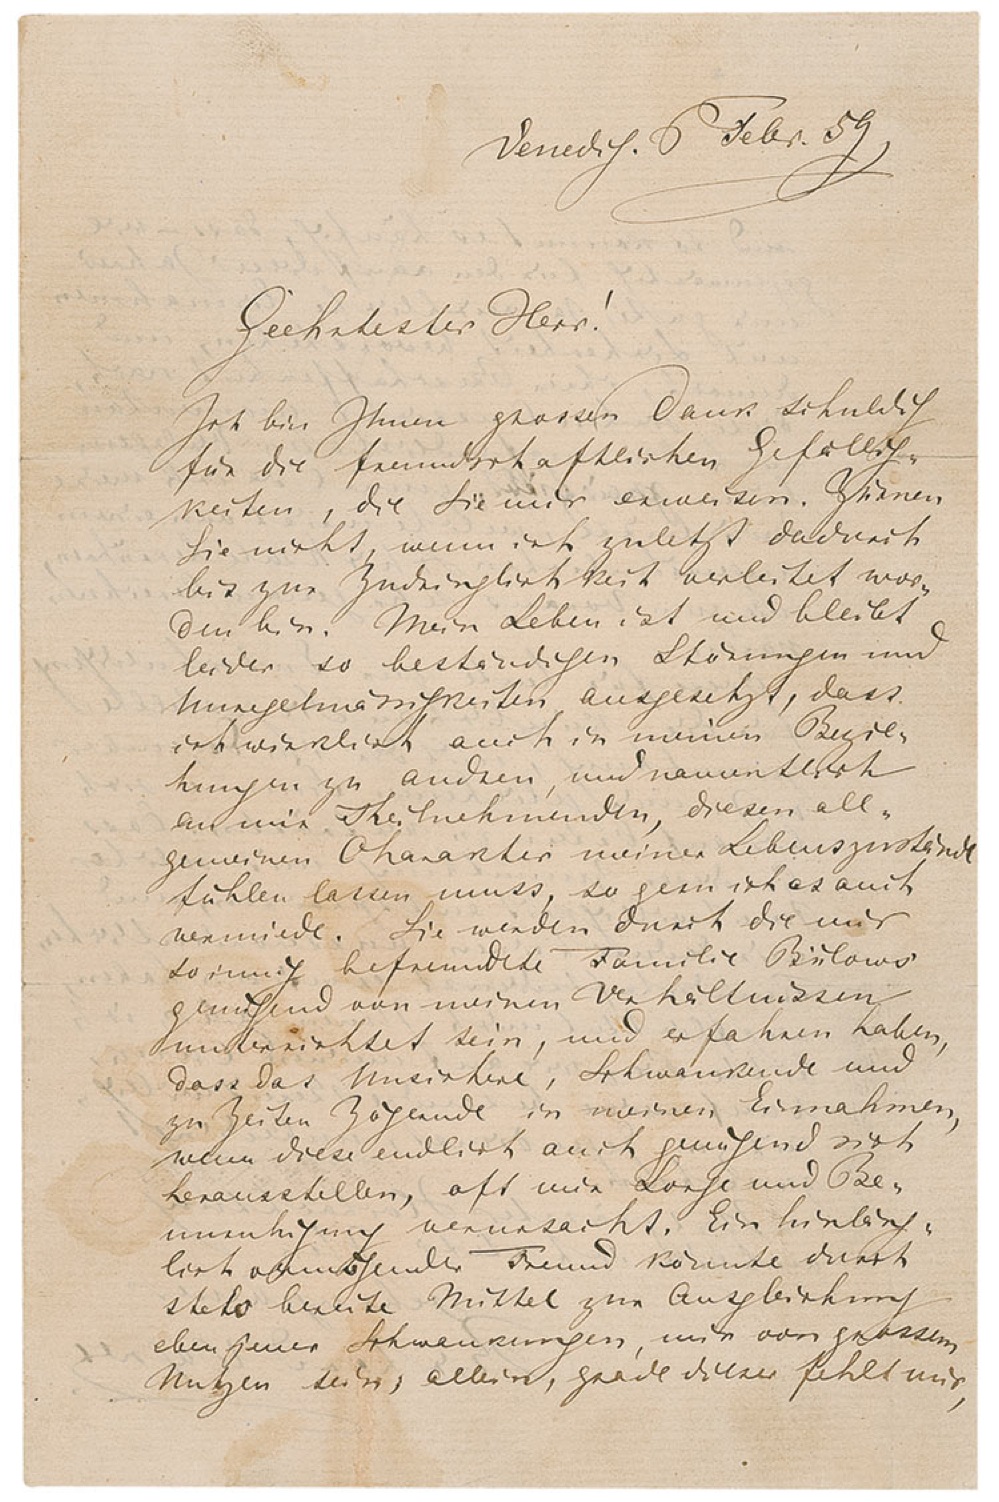 Venedig. 6 Febr. 59,
Geehrtester Herr!
Ich bin Ihnen grossen Dank schuldig
für die freundschaftlichen Gefällig-
keiten, die Sie mir erweisen. Zürnen
Sie nicht, wenn ich zuletzt dadurch
bis zur Zudringlichkeit verleitet wor-
den bin. Mein Leben ist und bleibt
leider so beständigen Störungen und
Unregelmässigkeiten ausgesetzt, dass
ich wirklich auch in meinen Bezie-
hungen zu andren, und namentlich
an mir Theilnehmenden, diesen all-
gemeinen Charakter meiner Lebenszustände
fühlen lassen muss, so gern ich es auch
vermiede. Sie werden durch die mir
so innig befreundete Familie Bülows
genügend von meinen Verhältnissen
unterrichtet sein, und erfahren haben,
dass das Unsichere, Schwankende und
zu Zeiten Zögernde in meinen Einnahmen,
wenn diese endlich auch genügend sich
herausstellen, oft mir Sorge und Be-
unruhigung verursacht. Ein hinläng-
lich vermögender Freund könnte durch
stets bereite Mittel zur Ausgleichung
eben jener Schwankungen, mir von grossem
Nutzen sein; allein, grade dieser fehlt mir,